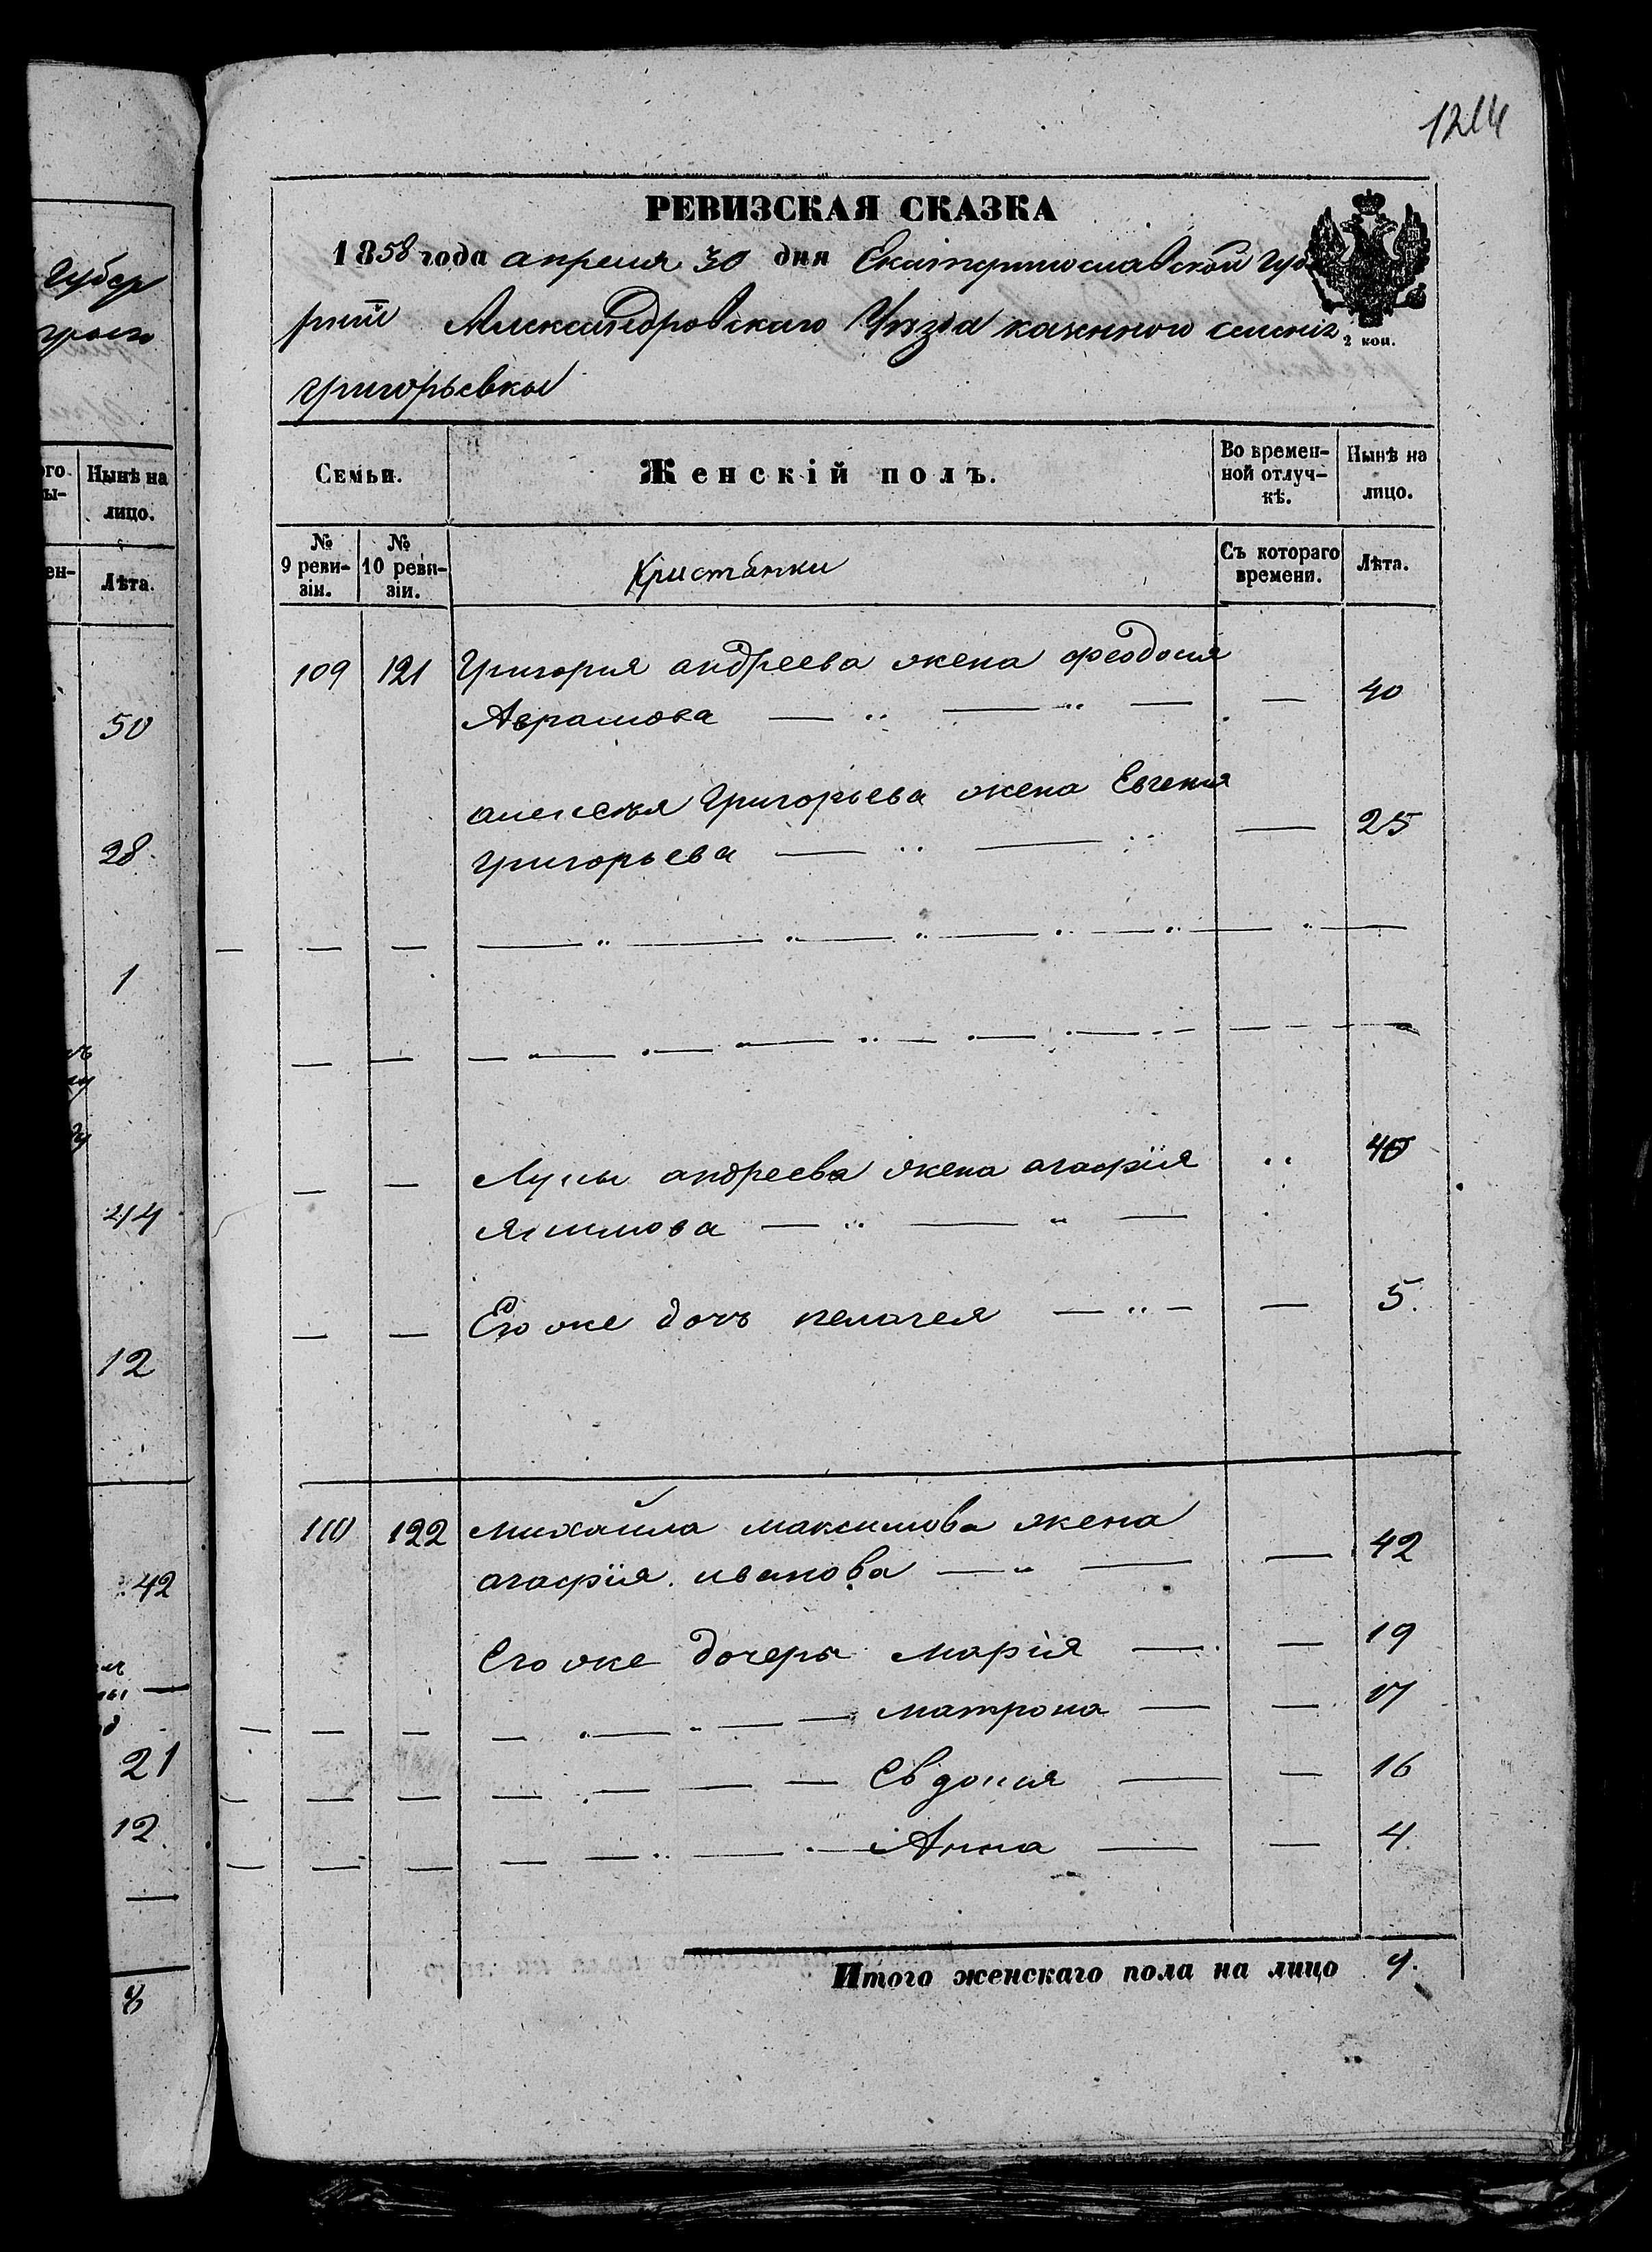 1214
РЕВИЗСКАЯ СКАЗКА
1858 года апреля 30 дня Екатеринославской Губе
рнiи Александровскаго Уѣзда казенного селенiя
2 коп.
Григорьевки
Губер
Семьи. Женскiй полъ. Во времен- Нынѣ на
ной отлуч- лицо.
кѣ.
№ №
9 реви- 10 реви-
зiи. зiи.
Кристанки
Съ котораго Лѣта.
времени.
109 121 Григория андреева жена феодосия
Аврамова — „ — „ — — 40
алексея Григорьева жена Евгения
григорьева — „ — „ — 25
Луки андреева жена агафiя „ 40
якимова — „ — „ —
Его же дочь пелагея — „ — — 5.
110 122 михайла максимова жена
агафiя иванова — „ — — 42
Его же дочери мария — — 19
матрона — — 17
Евдокия — — 16
Анна — — 4
Итого женскаго пола на лицо 9.
Нынѣ на
лицо.
Лѣта.
50
28
1
44
12
42
21
12
8